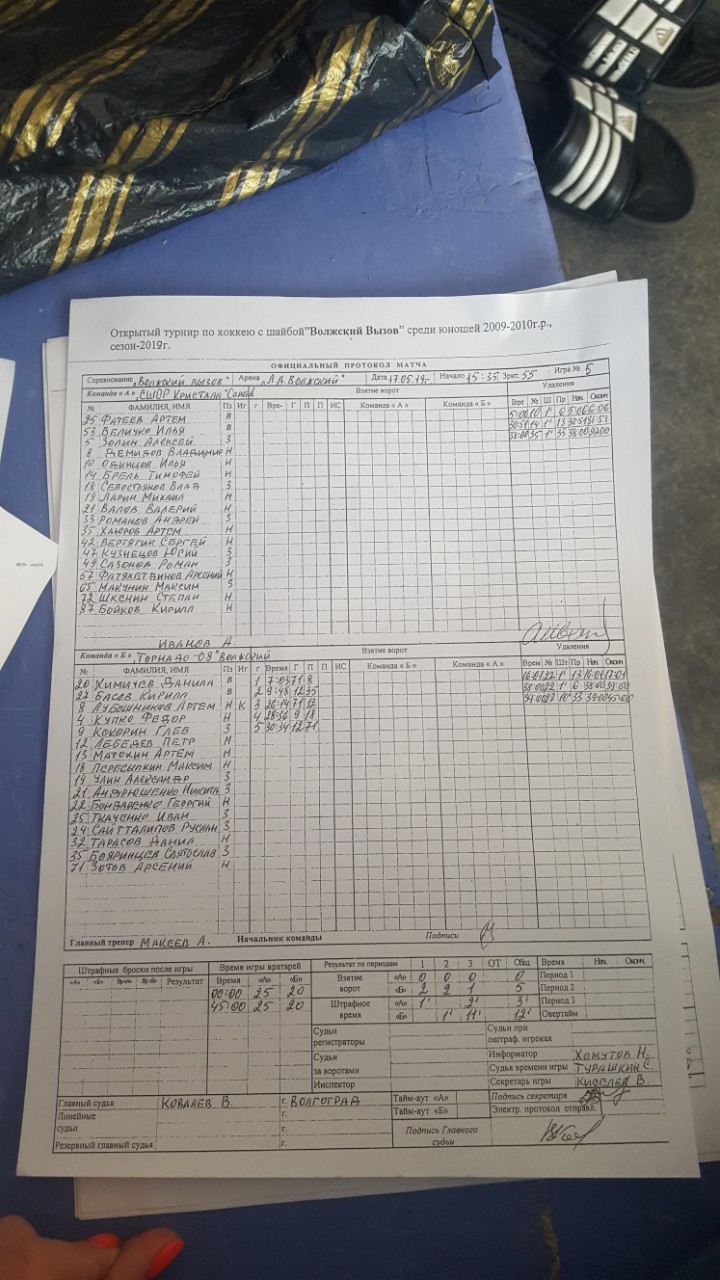 Открытый турнир по хоккею с шайбой"Волжский Вызов" среди юношей 2009-2010г.р.,
сезон-2019г.
ОФИЦИАЛЬНЫЙ ПРОТОКОЛ МАТЧА
Соревнование "Волжский вызов" Арена "Л.А. Волжский" Дата 17.05.19г. Начало 15:35 Зрит. 55 Игра № 5
Команда « А » "СШОР Кристалл" Взятие ворот Удаления
№ ФАМИЛИЯ, ИМЯ Пз Иг г Вре- Г П П ИС Команда « А » Команда « Б » Вре № Ш Пр Нач Оконч
25 ФАТЕЕВ АРТЕМ В 5:00 10 1' 6 5:06 6:06
53 ВЕЛИЧКО ИЛЬЯ В 30:51 14 1' 13 30:51 31:51
5 ЗОЛИН АЛЕКСЕЙ З 38:00 35 1' 33 38:00 39:00
8 ДЕМИДОВ ВЛАДИМИР Н
10 ОДИНЦОВ ИЛЬЯ Н
14 БРЕЛЬ ТИМОФЕЙ Н
18 СЕВОСТЬЯНОВ ВЛАД З
19 ЛАРИН МИХАИЛ Н
21 ВАЛОВ ВАЛЕРИЙ Н
33 РОМАНОВ АНДРЕЙ З
35 ХАЮРОВ АРТЕМ Н
42 ВЕРТЯГИН СЕРГЕЙ Н
47 КУЗНЕЦОВ ЮРИЙ З
49 САЗОНОВ РОМАН З
57 ФАТЯХЕТДИНОВ АРСЕНИЙ Н
65 МАКУНИН МАКСИМ З
72 ШКЕНИН СТЕПАН Н
87 БОЙКОВ КИРИЛЛ Н
ИВАНОВ А.
Команда « Б » "ТОРНАДО-08" ВОЛЖСКИЙ Взятие ворот Удаления
№ ФАМИЛИЯ, ИМЯ Пз Иг г Время Г П П ИС Команда « Б » Команда « А » Врем № Шт Пр Нач Оконч
20 ХИМИЧЕВ ДАНИЛА В 1 7:03 71 8 16:01 22 1' 13 16:01 17:01
27 БАСОВ КИРИЛЛ В 2 9:48 12 35 38:00 22 1' 6 38:00 39:00
8 ЛУБОШНИКОВ АРТЕМ Н К 3 26:14 71 12 39:00 22 10' 33 39:00 45:00
4 КУПКО ФЕДОР Н 4 28:36 9 18
9 КОКОРИН ГЛЕБ З 5 30:34 12 71
12 ЛЕБЕДЕВ ПЕТР Н
13 МАТОХИН АРТЕМ Н
18 ПЕРЕСЫПКИН МАКСИМ Н
19 УЛИН АЛЕКСАНДР З
21 АНДРЮШЕНКО НИКИТА З
22 БОНДАРЕНКО ГЕОРГИЙ Н
25 ТКАЧЕНКО ИВАН З
24 САЙТТАЛИПОВ РУСЛАН З
32 ТАРАСОВ ДАНИЛ Н
35 БОЯРИНЦЕВ СВЯТОСЛАВ З
71 ЗОТОВ АРСЕНИЙ Н
Главный тренер МАКЕЕВ А. Начальник команды Подписи
Штрафные броски после игры Время игры вратарей Результат по периодам 1 2 3 ОТ Общ Время Нач. Оконч.
«А» «Б» Вр«А» Вр«Б» Результат Время «А» «Б» Взятие ворот «А» 0 0 0 0 Период 1
00:00 25 20 «Б» 2 2 1 5 Период 2
45:00 25 20 Штрафное время «А» 1' 2' 3' Период 3
«Б» 1' 11' 12' Овертайм
Судьи регистраторы Судьи при оштраф. игроках
Судьи за воротами Информатор ХОМУТОВ Н.
Судья времени игры ТУРАШКИН С.
Инспектор Секретарь игры КИСЕЛЕВ В.
Главный судья КОВАЛЕВ В. г. ВОЛГОГРАД Тайм-аут «А» Подпись секретаря
Линейные судьи г. Тайм-аут «Б» Электр. протокол отправл.
г. Подпись Главного судьи
Резервный главный судья г.